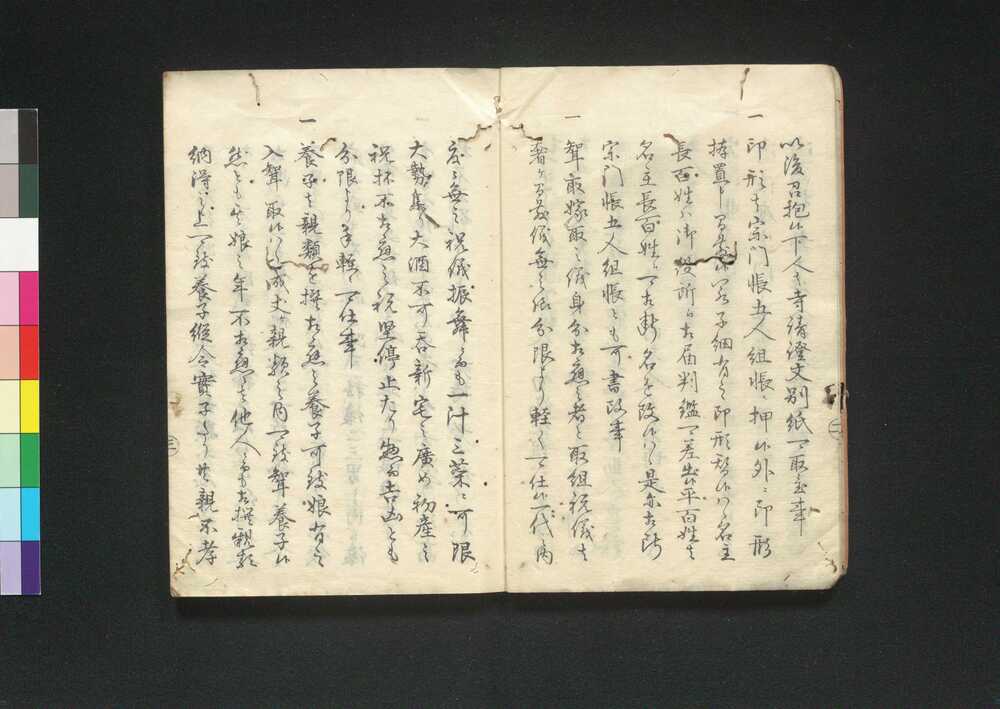 以後召抱候下人寺請證文別紙可取置事
一
印形者宗門帳五人組帳ニ押候外ニ印形
拵置申間敷候若子細有之印形替候ハヽ名主
長百姓ハ御役所江相届判鑑可差出候平百姓者
名主長百姓江可相断名を改候ハヽ是亦相断
宗門帳五人組帳とも可書改事
一
聟取嫁取之儀身分相應之者と取組祝儀者
奢ヶ間敷儀無之様分限より軽く可仕候一代之内
度々無之祝儀振舞ニ而も一汁三菜ニ可限
大勢集り大酒不可呑新宅之廣め初産之
祝抔不相應之祝堅停止たり惣而吉凶とも
分限より手軽く可仕事
一
養子者親類を撰相應之養子可致娘有之
入聟取候ハヽ成丈ヶ親類之内可致聟養子候
然とも娘之年不相應之者他人ニ而も相撰親類
納得之上可致養子縦令實子たり共親不孝
二
三